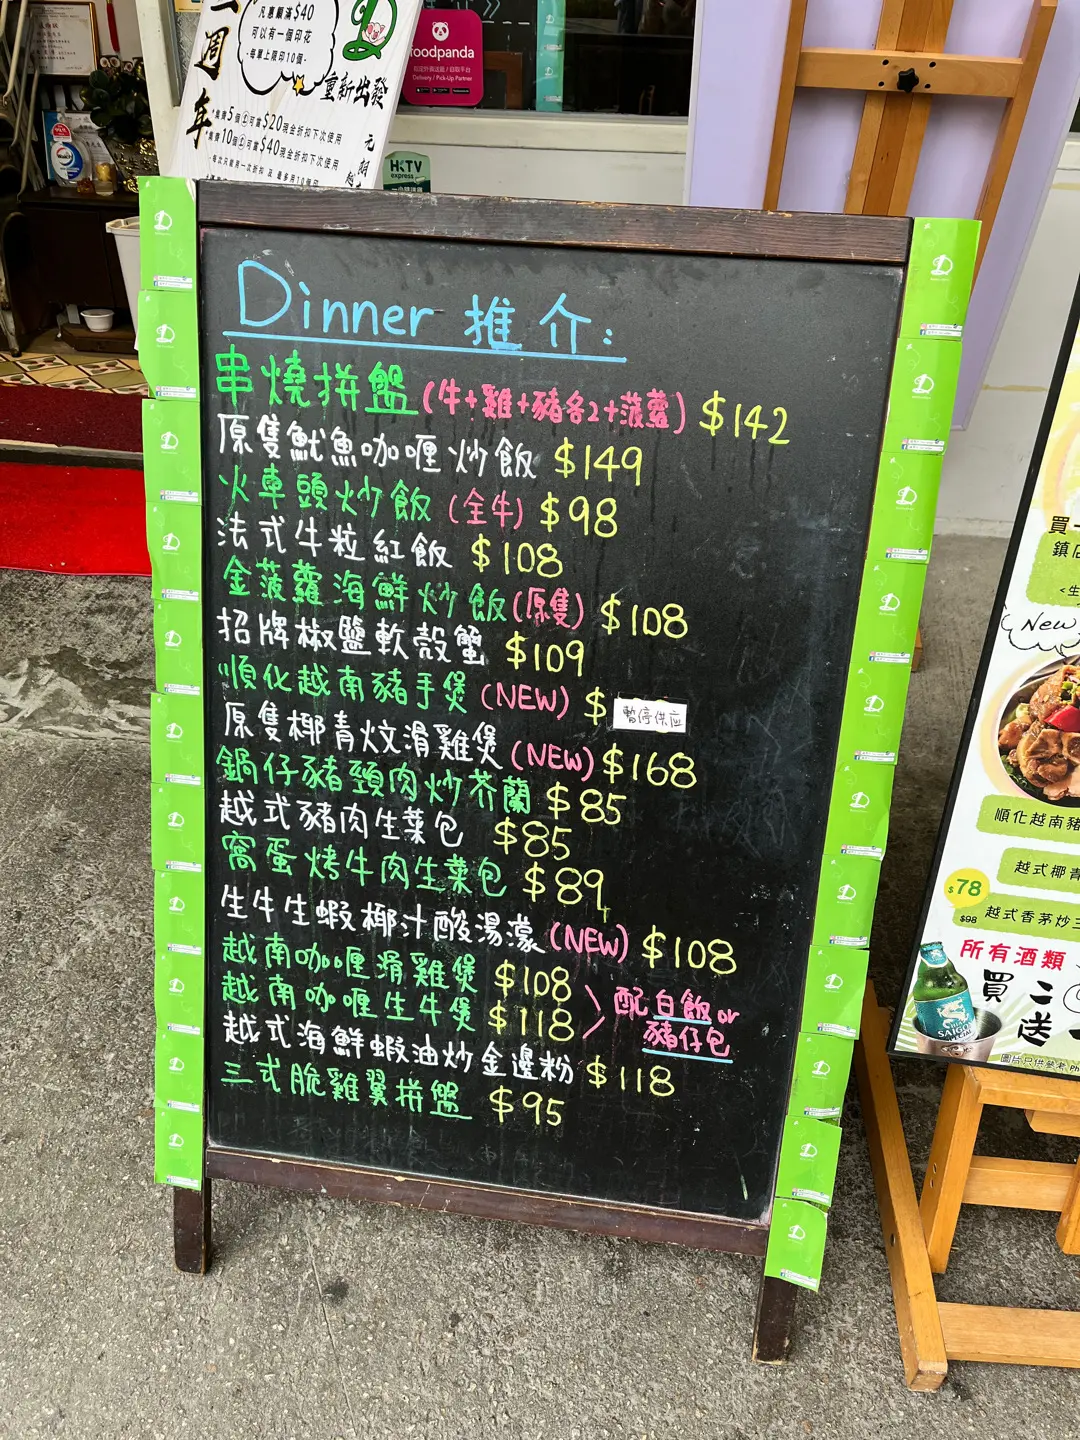 週年
凡惠顧滿$40
可以有一個印花
·每單上限印10個·
重新出發
foodpanda
Delivery / Pick-Up Partner
HKTV
express
Dinner 推介:
串燒拼盤(牛+雞+豬各2+菠蘿) $142
原隻魷魚咖喱炒飯 $149
火車頭炒飯 (全牛) $98
法式牛粒紅飯 $108
金菠蘿海鮮炒飯(原隻) $108
招牌椒鹽軟殼蟹 $109
順化越南豬手煲 (NEW) $ 暫停供应
原隻椰青炆滑雞煲 (NEW) $168
鍋仔豬頸肉炒芥蘭 $85
越式豬肉生菜包 $85
窩蛋烤牛肉生菜包 $89
生牛生蝦椰汁酸湯濛 (NEW) $108
越南咖喱滑雞煲 $108
越南咖喱生牛煲 $118
配白飯or
豬仔包
越式海鮮蝦油炒金邊粉 $118
三式脆雞翼拼盤 $95
買一
鎮店
New
順化越南豬
越式椰青
$78
$98 越式香茅炒三
所有酒類
買二
送
圖片只供參考